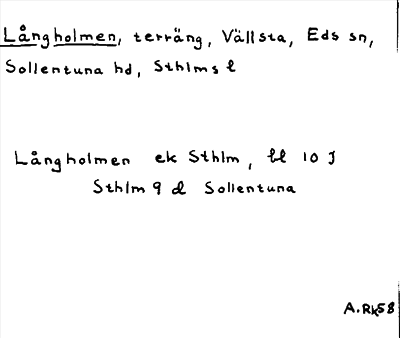 Långholmen, terräng, Vällsta, Eds sn,
Sollentuna hd, Sthlms l
Långholmen ek Sthlm, bl 10 J
Sthlm 9 d Sollentuna
A.Rk58